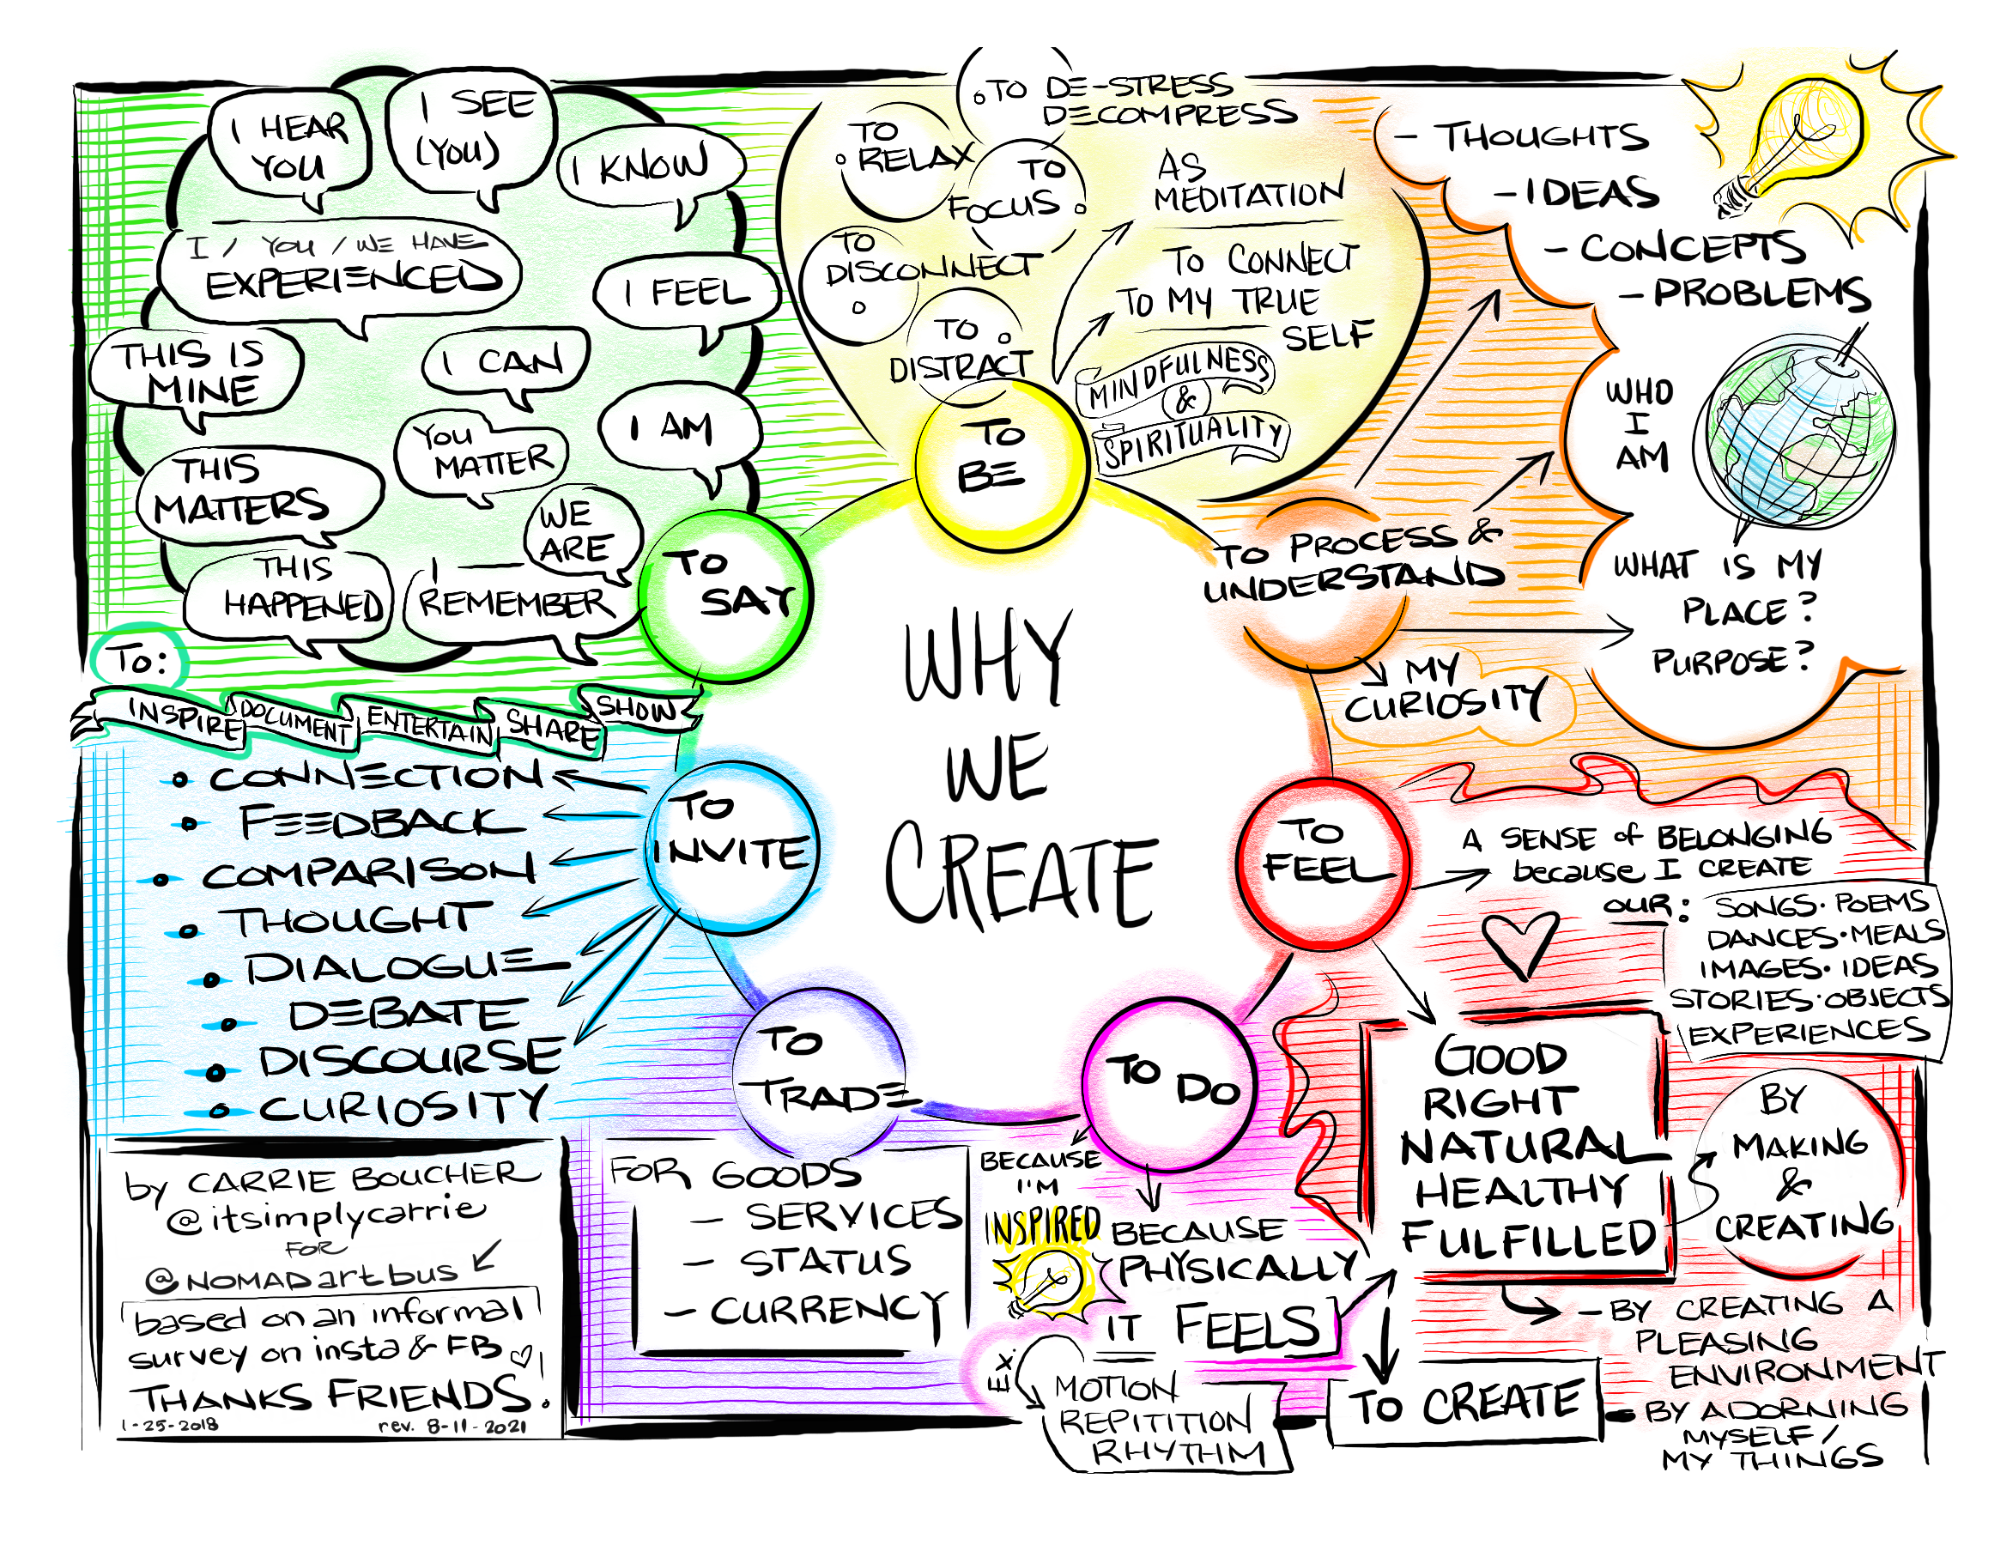 WHY
WE
CREATE
TO
BE
TO DE-STRESS
DECOMPRESS
TO
RELAX
TO
FOCUS
TO
DISCONNECT
TO
DISTRACT
AS
MEDITATION
TO CONNECT
TO MY TRUE
SELF
MINDFULNESS
&
SPIRITUALITY
TO PROCESS &
UNDERSTAND
- THOUGHTS
- IDEAS
- CONCEPTS
- PROBLEMS
WHO
I
AM
WHAT IS MY
PLACE?
PURPOSE?
MY
CURIOSITY
TO
FEEL
A SENSE of BELONGING
because I CREATE
OUR:
SONGS · POEMS
DANCES · MEALS
IMAGES · IDEAS
STORIES · OBJECTS
EXPERIENCES
GOOD
RIGHT
NATURAL
HEALTHY
FULFILLED
BY
MAKING
&
CREATING
- BY CREATING A
PLEASING
ENVIRONMENT
- BY ADORNING
MYSELF /
MY THINGS
TO DO
BECAUSE
I'M
INSPIRED
BECAUSE
PHYSICALLY
IT FEELS
Ex.
MOTION
REPITITION
RHYTHM
TO CREATE
TO
TRADE
FOR GOODS
- SERVICES
- STATUS
- CURRENCY
TO
INVITE
• CONNECTION
• FEEDBACK
• COMPARISON
• THOUGHT
• DIALOGUE
• DEBATE
• DISCOURSE
• CURIOSITY
TO
SAY
I HEAR
YOU
I SEE
(YOU)
I KNOW
I / YOU / WE HAVE
EXPERIENCED
I FEEL
THIS IS
MINE
I CAN
I AM
YOU
MATTER
THIS
MATTERS
WE
ARE
THIS
HAPPENED
I
REMEMBER
TO:
INSPIRE DOCUMENT ENTERTAIN SHARE SHOW
by CARRIE BOUCHER
@itsimplycarrie
FOR
@NOMADartbus
based on an informal
survey on insta & FB
THANKS FRIENDS!
1-25-2018 rev. 8-11-2021